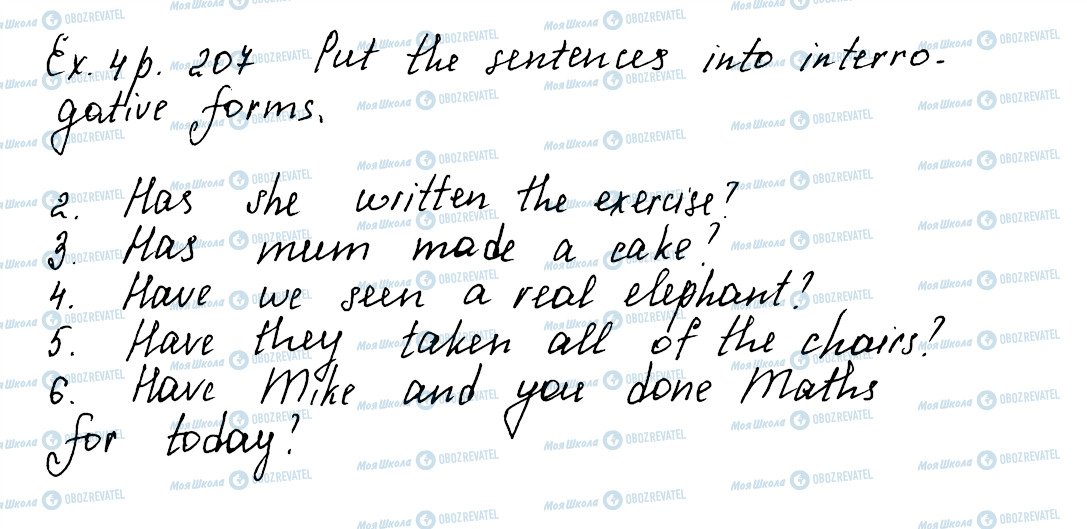 Ex. 4 p. 207 Put the sentences into interro-
gative forms.
2. Has she written the exercise?
3. Has mum made a cake?
4. Have we seen a real elephant?
5. Have they taken all of the chairs?
6. Have Mike and you done Maths
for today?